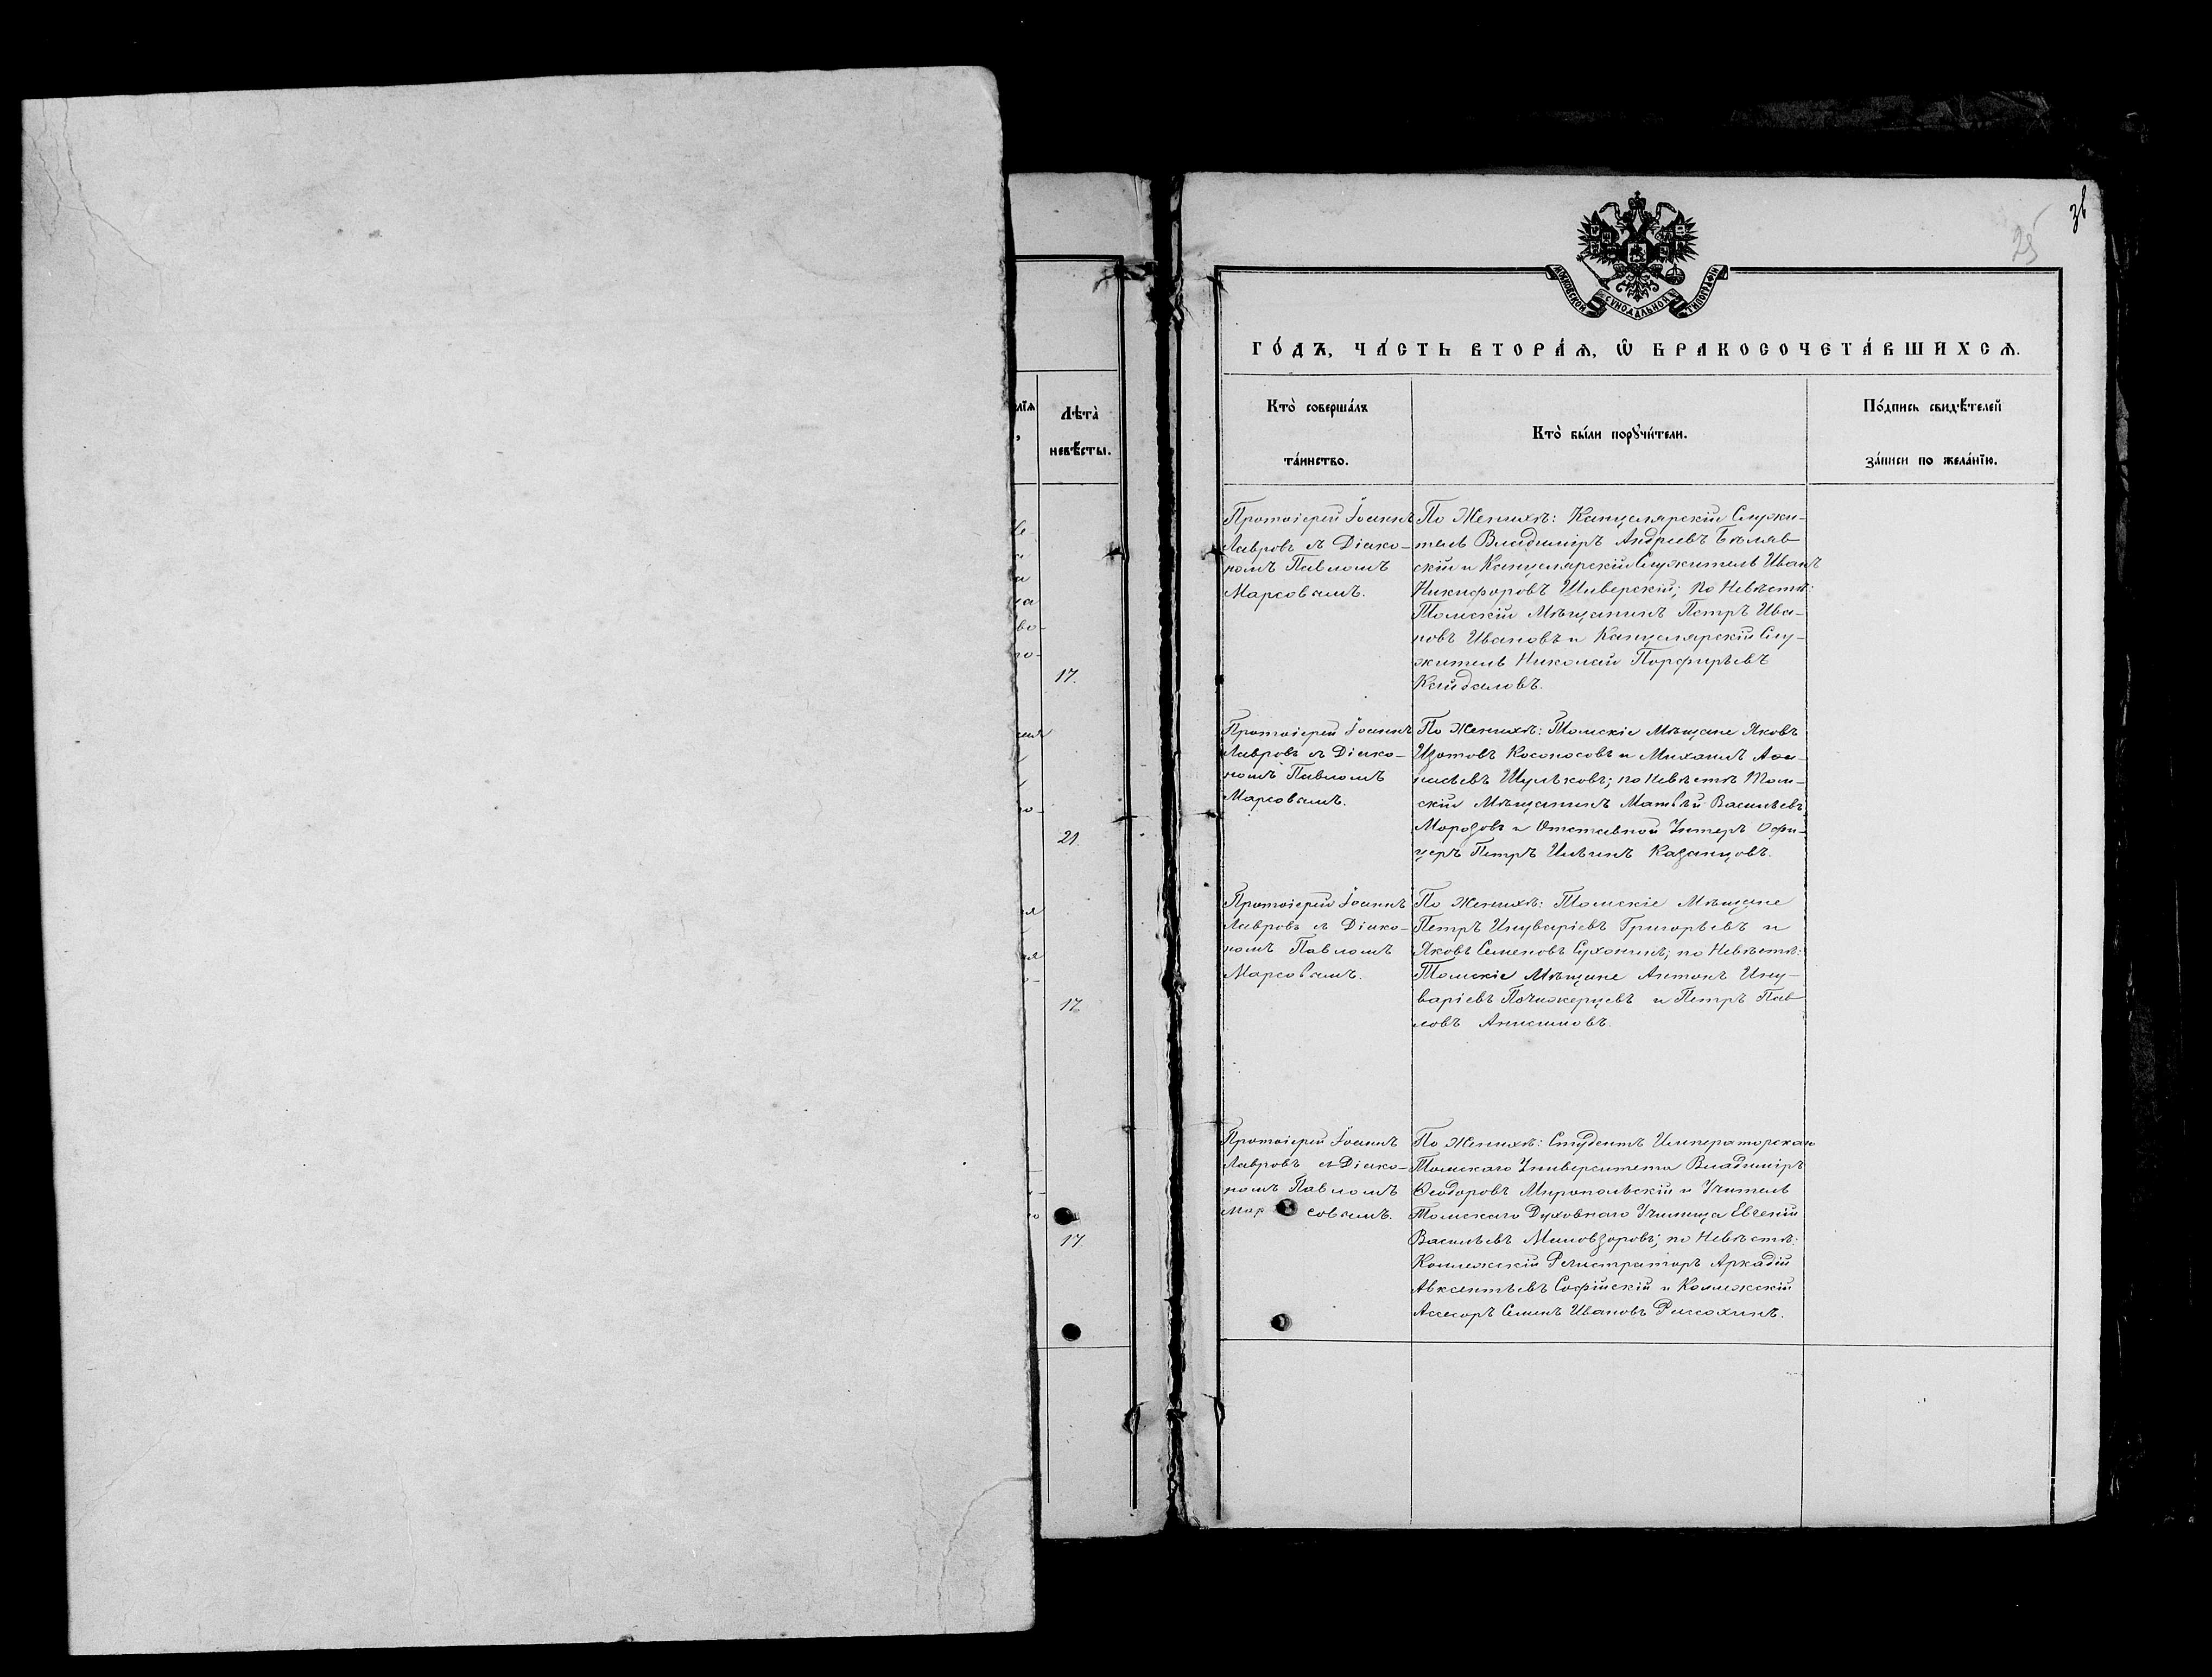 36
25
МОСКОВСКОЙ СѴНОДАЛЬНОЙ ТИПОГРАФІИ
ГО́ДЪ, ЧА́СТЬ ВТОРА́Ѧ, Ѽ БРАКОСОЧЕТА́ВШИХСѦ.
лїѧ
Лѣта̀
невѣ́сты.
Кто̀ соверша́лъ
та́инство.
Кто̀ бы́ли порꙋчи́тели.
По́дпись свидѣ́телей
за́писи по жела́нїю.
17.
21.
17.
17.
Протоіерей Іоаннъ
Лавровъ съ Діако-
номъ Павломъ
Марсовымъ.
По Женихѣ: Канцелярскій Служи-
тель Владиміръ Андреевъ Бѣляв
скій и Канцелярскій Служитель Иванъ
Никифоровъ Шиверскій; по Невѣстѣ:
Томскій Мѣщанинъ Петръ Ива-
новъ Ивановъ и Канцелярскій Слу-
житель Николай Порфирьевъ
Кайдаловъ.
Протоіерей Іоаннъ
Лавровъ съ Діако-
номъ Павломъ
Марсовымъ.
По Женихѣ: Томскіе Мѣщане Яковъ
Изотовъ Косоносовъ и Михаилъ Аѳа-
насьевъ Шульковъ; по Невѣстѣ Том-
скій Мѣщанинъ Матвѣй Васильевъ
Морозовъ и Отставной Унтеръ Офи-
церъ Петръ Ильинъ Казанцовъ.
Протоіерей Іоаннъ
Лавровъ съ Діако-
номъ Павломъ
Марсовымъ.
По Женихѣ: Томскіе Мѣщане
Петръ Інуваріевъ Григорьевъ и
Яковъ Семеновъ Сухонинъ; по Невѣстѣ:
Томскіе Мѣщане Антонъ Ину-
варіевъ и Петръ Пав
ловъ Анисимовъ.
Протоіерей Іоаннъ
Лавровъ съ Діако-
номъ Павломъ
Мар совымъ.
По Женихѣ: Студентъ Императорскаго
Томскаго Университета Владиміръ
Ѳеодоровъ Миропольскій и Учитель
Томскаго Духовнаго Училища Евгеній
Васильевъ Миловзоровъ; по Невѣстѣ:
Коллежскій Регистраторъ Аркадій
Авксентьевъ Софійскій и Коллежскій
Ассесоръ Семенъ Ивановъ Рассохинъ.